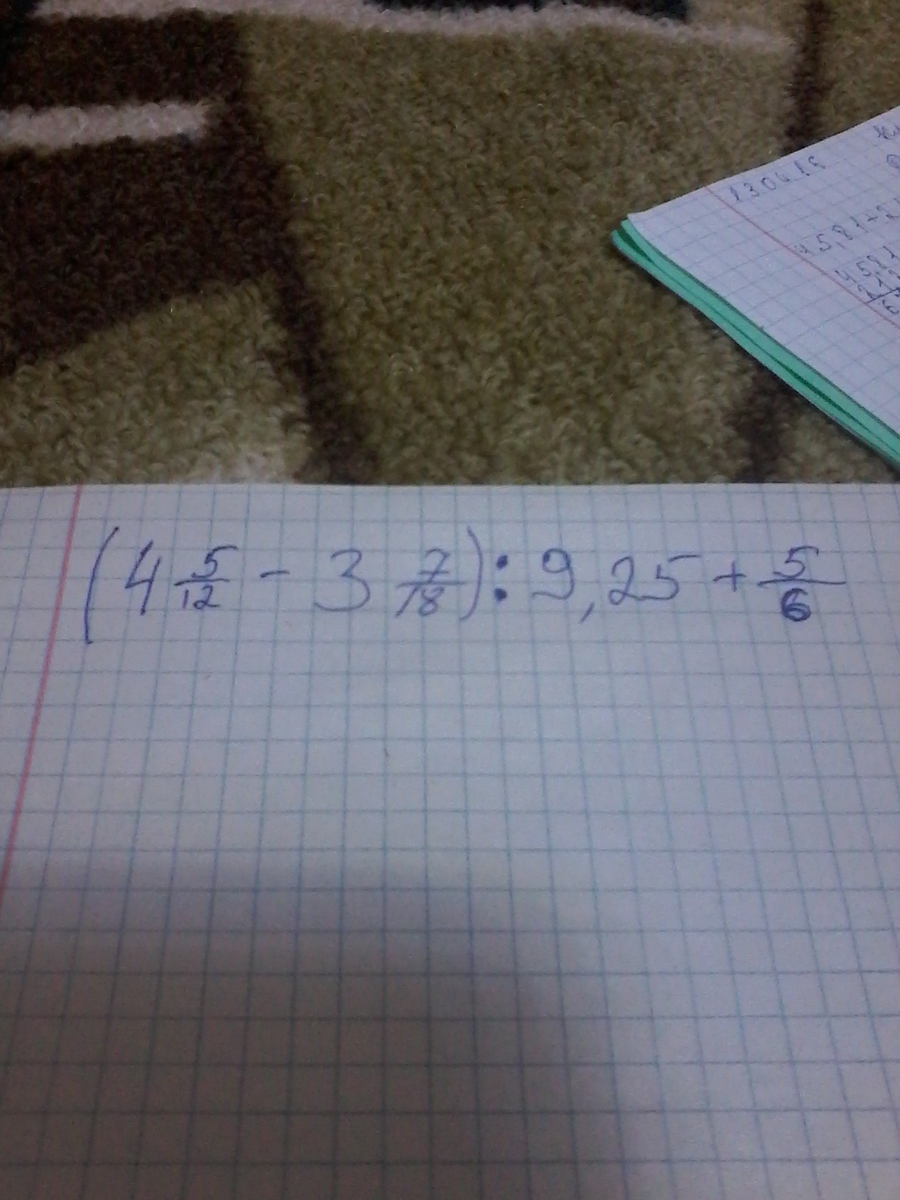 130416
4581+2
4581
(4 5/12 - 3 7/18) : 9,25 + 5/6